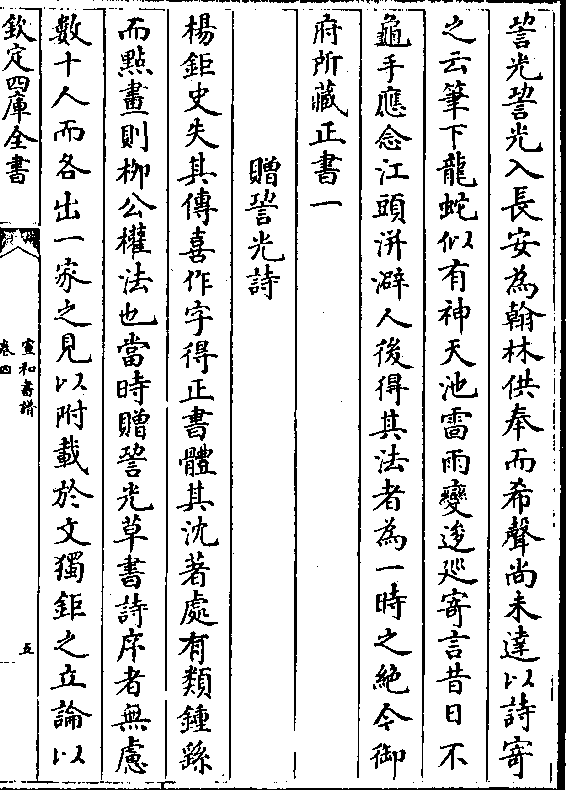 鞏光鞏光入長安為翰林供奉而希聲尚未達以詩寄
之云筆下龍蛇似有神天池雷雨變逡巡寄言昔日不
龜手應念江頭洴澼人後得其法者為一時之絶今御
府所藏正書一
贈鞏光詩
楊鉅史失其傳喜作字得正書體其沈著處有類鍾繇
而㸃畫則柳公權法也當時贈鞏光草書詩序者無慮
數十人而各出一家之見以附載於文獨鉅之立論以
欽定四庫全書
宣和書譜
卷四
五